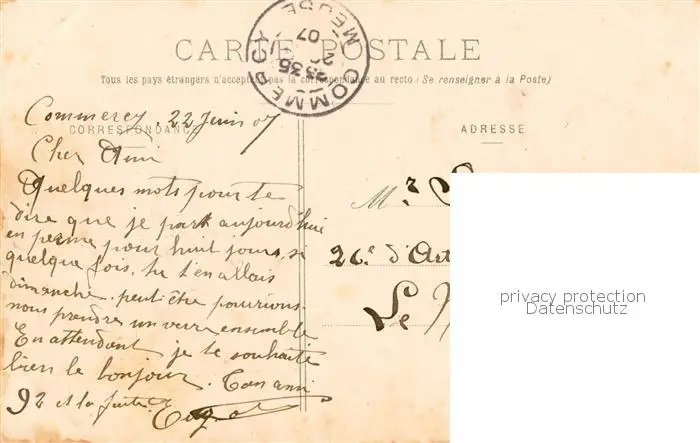 CARTE POSTALE
Tous les pays étrangers n'acceptent pas la correspondance au recto (Se renseigner à la Poste)
COMMERCY
MEUSE
23 35
07
CORRESPONDANCE
ADRESSE
Commercy, 22 Juin 07
Cher Ami
Quelques mots pour te
dire que je part aujourd'hui
en perme pour huit jours, si
quelque fois, tu t'en allais
dimanche peut être pourions
nous prendre un verre ensemble
En attendant je te souhaite
bien le bonjour. Ton ami
92 et la fuite
Mr
26e d'Art
Le
privacy protection
Datenschutz